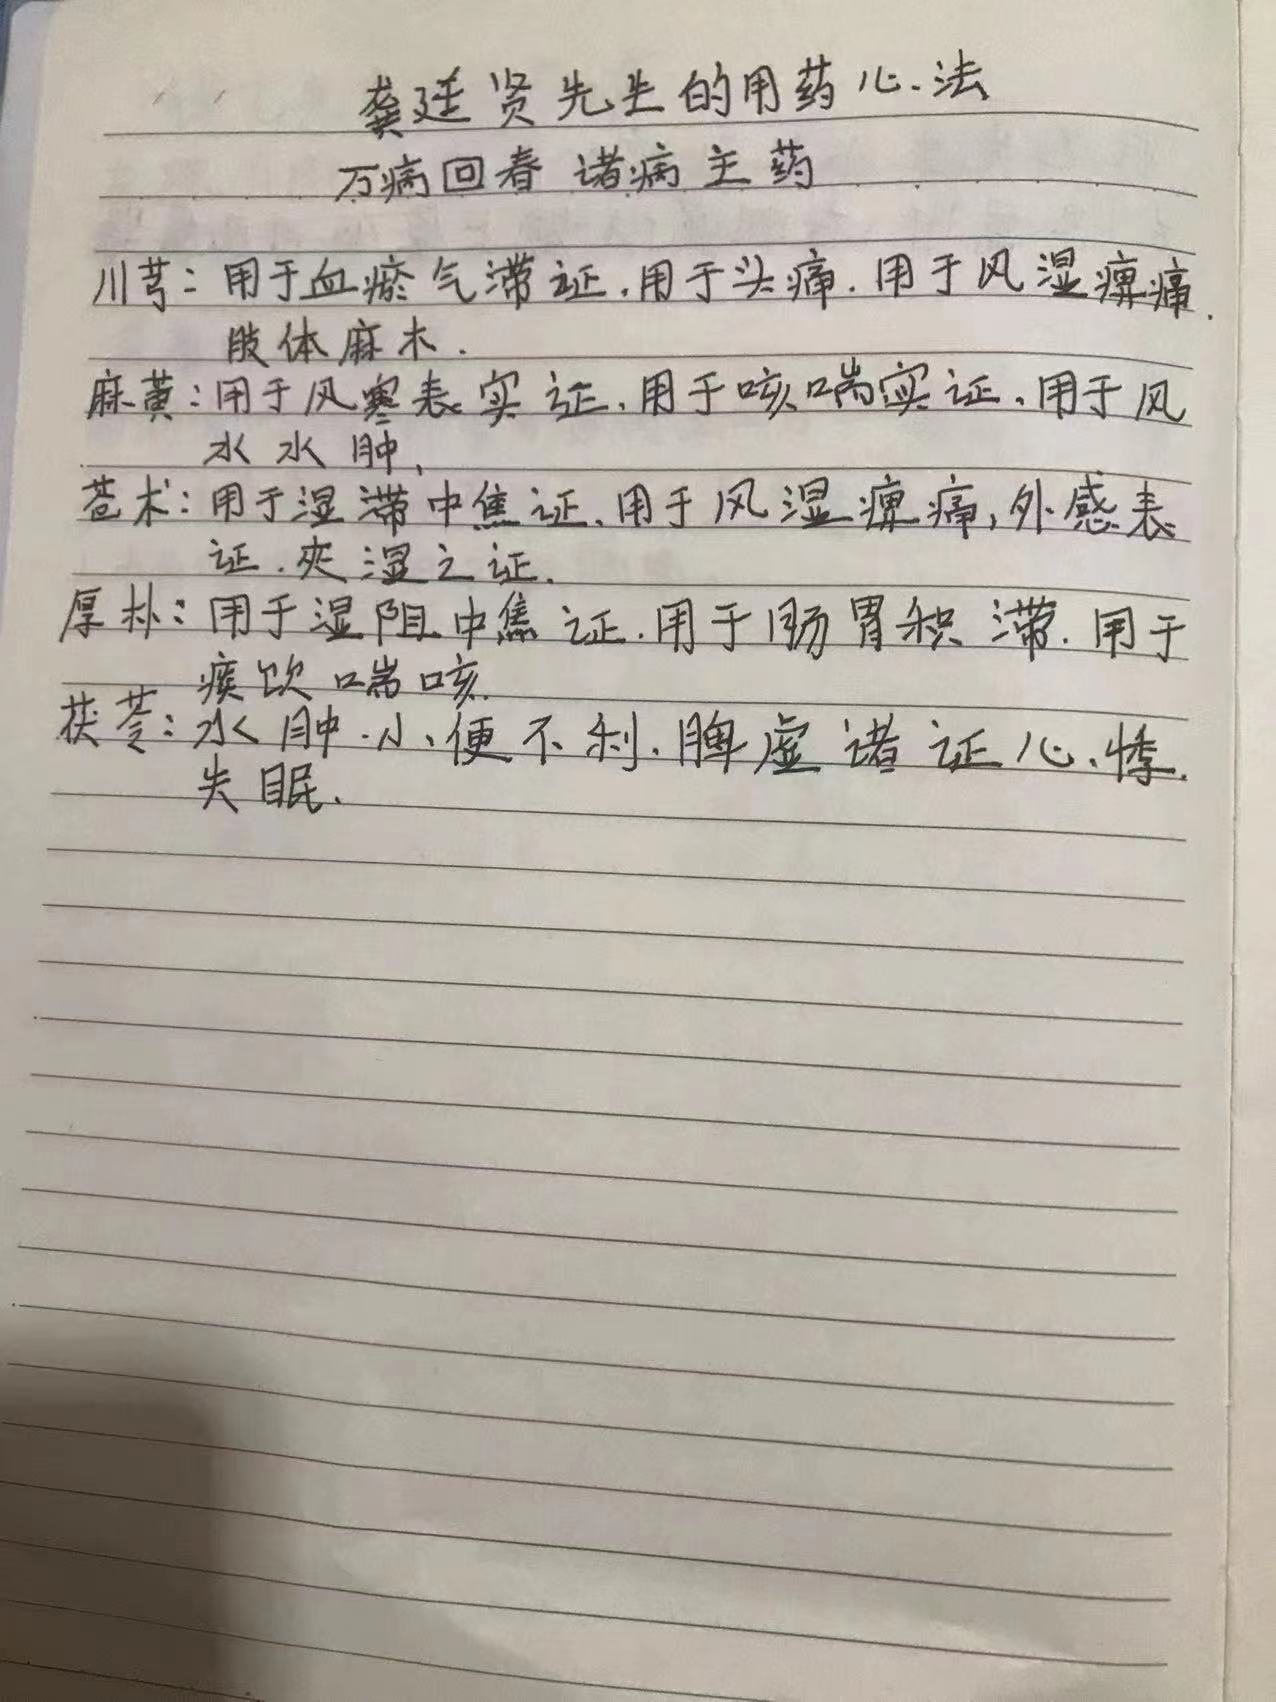 龚廷贤先生的用药心法
万病回春 诸病主药
川芎:用于血瘀气滞证.用于头痛.用于风湿痹痛.
肢体麻木.
麻黄:用于风寒表实证.用于咳喘实证.用于风
水水肿.
苍术:用于湿滞中焦证.用于风湿痹痛,外感表
证.夹湿之证.
厚朴:用于湿阻中焦证.用于肠胃积滞.用于
痰饮喘咳.
茯苓:水肿.小便不利.脾虚诸证心悸.
失眠.